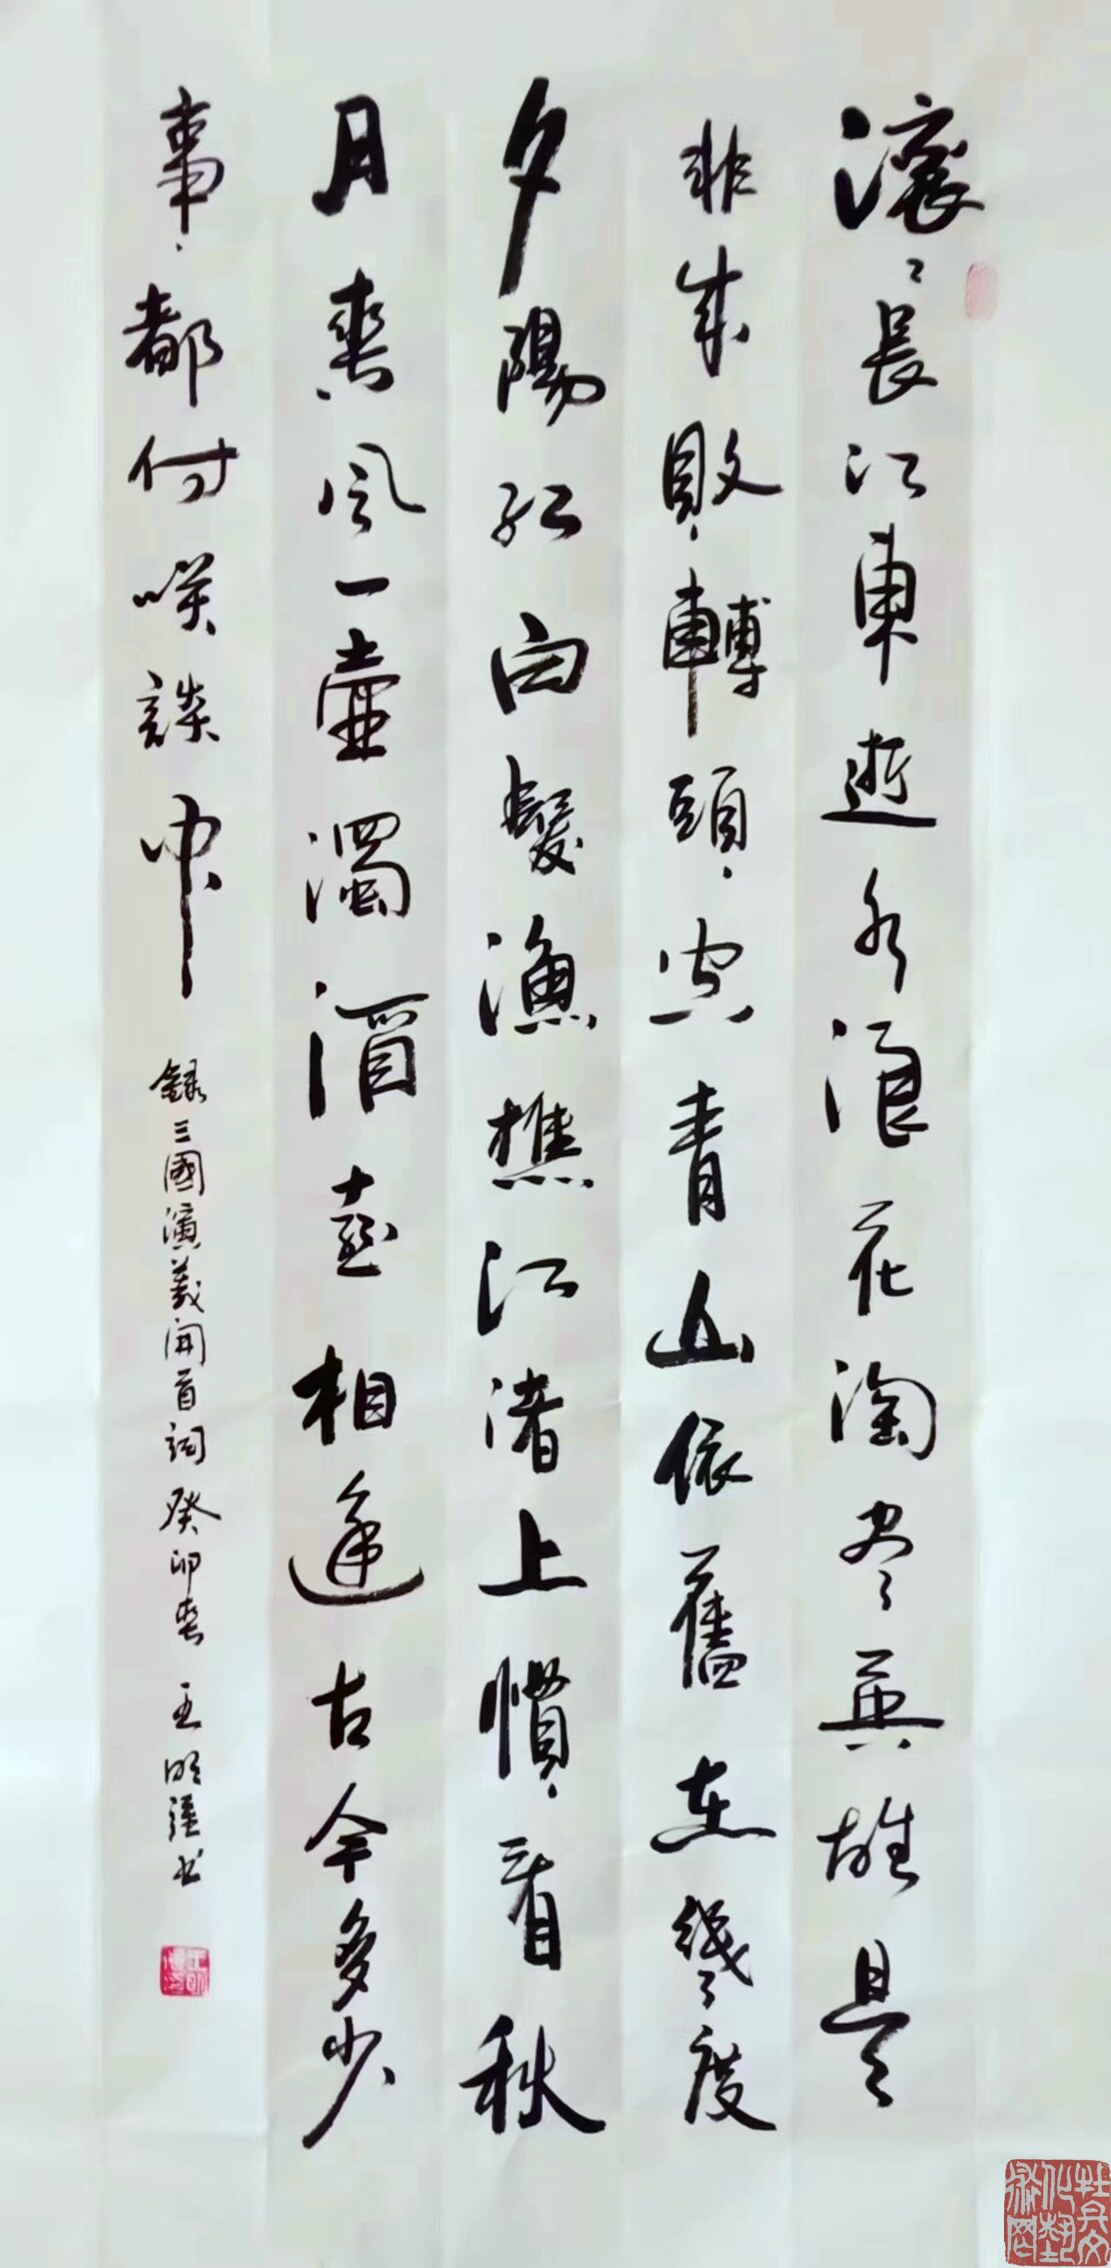 滾〻長江東逝水浪花淘尽英雄是
非成敗轉頭空青山依舊在幾度
夕陽紅白髮漁樵江渚上慣看秋
月春風一壺濁酒喜相逢古今多少
事都付咲談中
録三國演義開首詞癸卯春王明强书